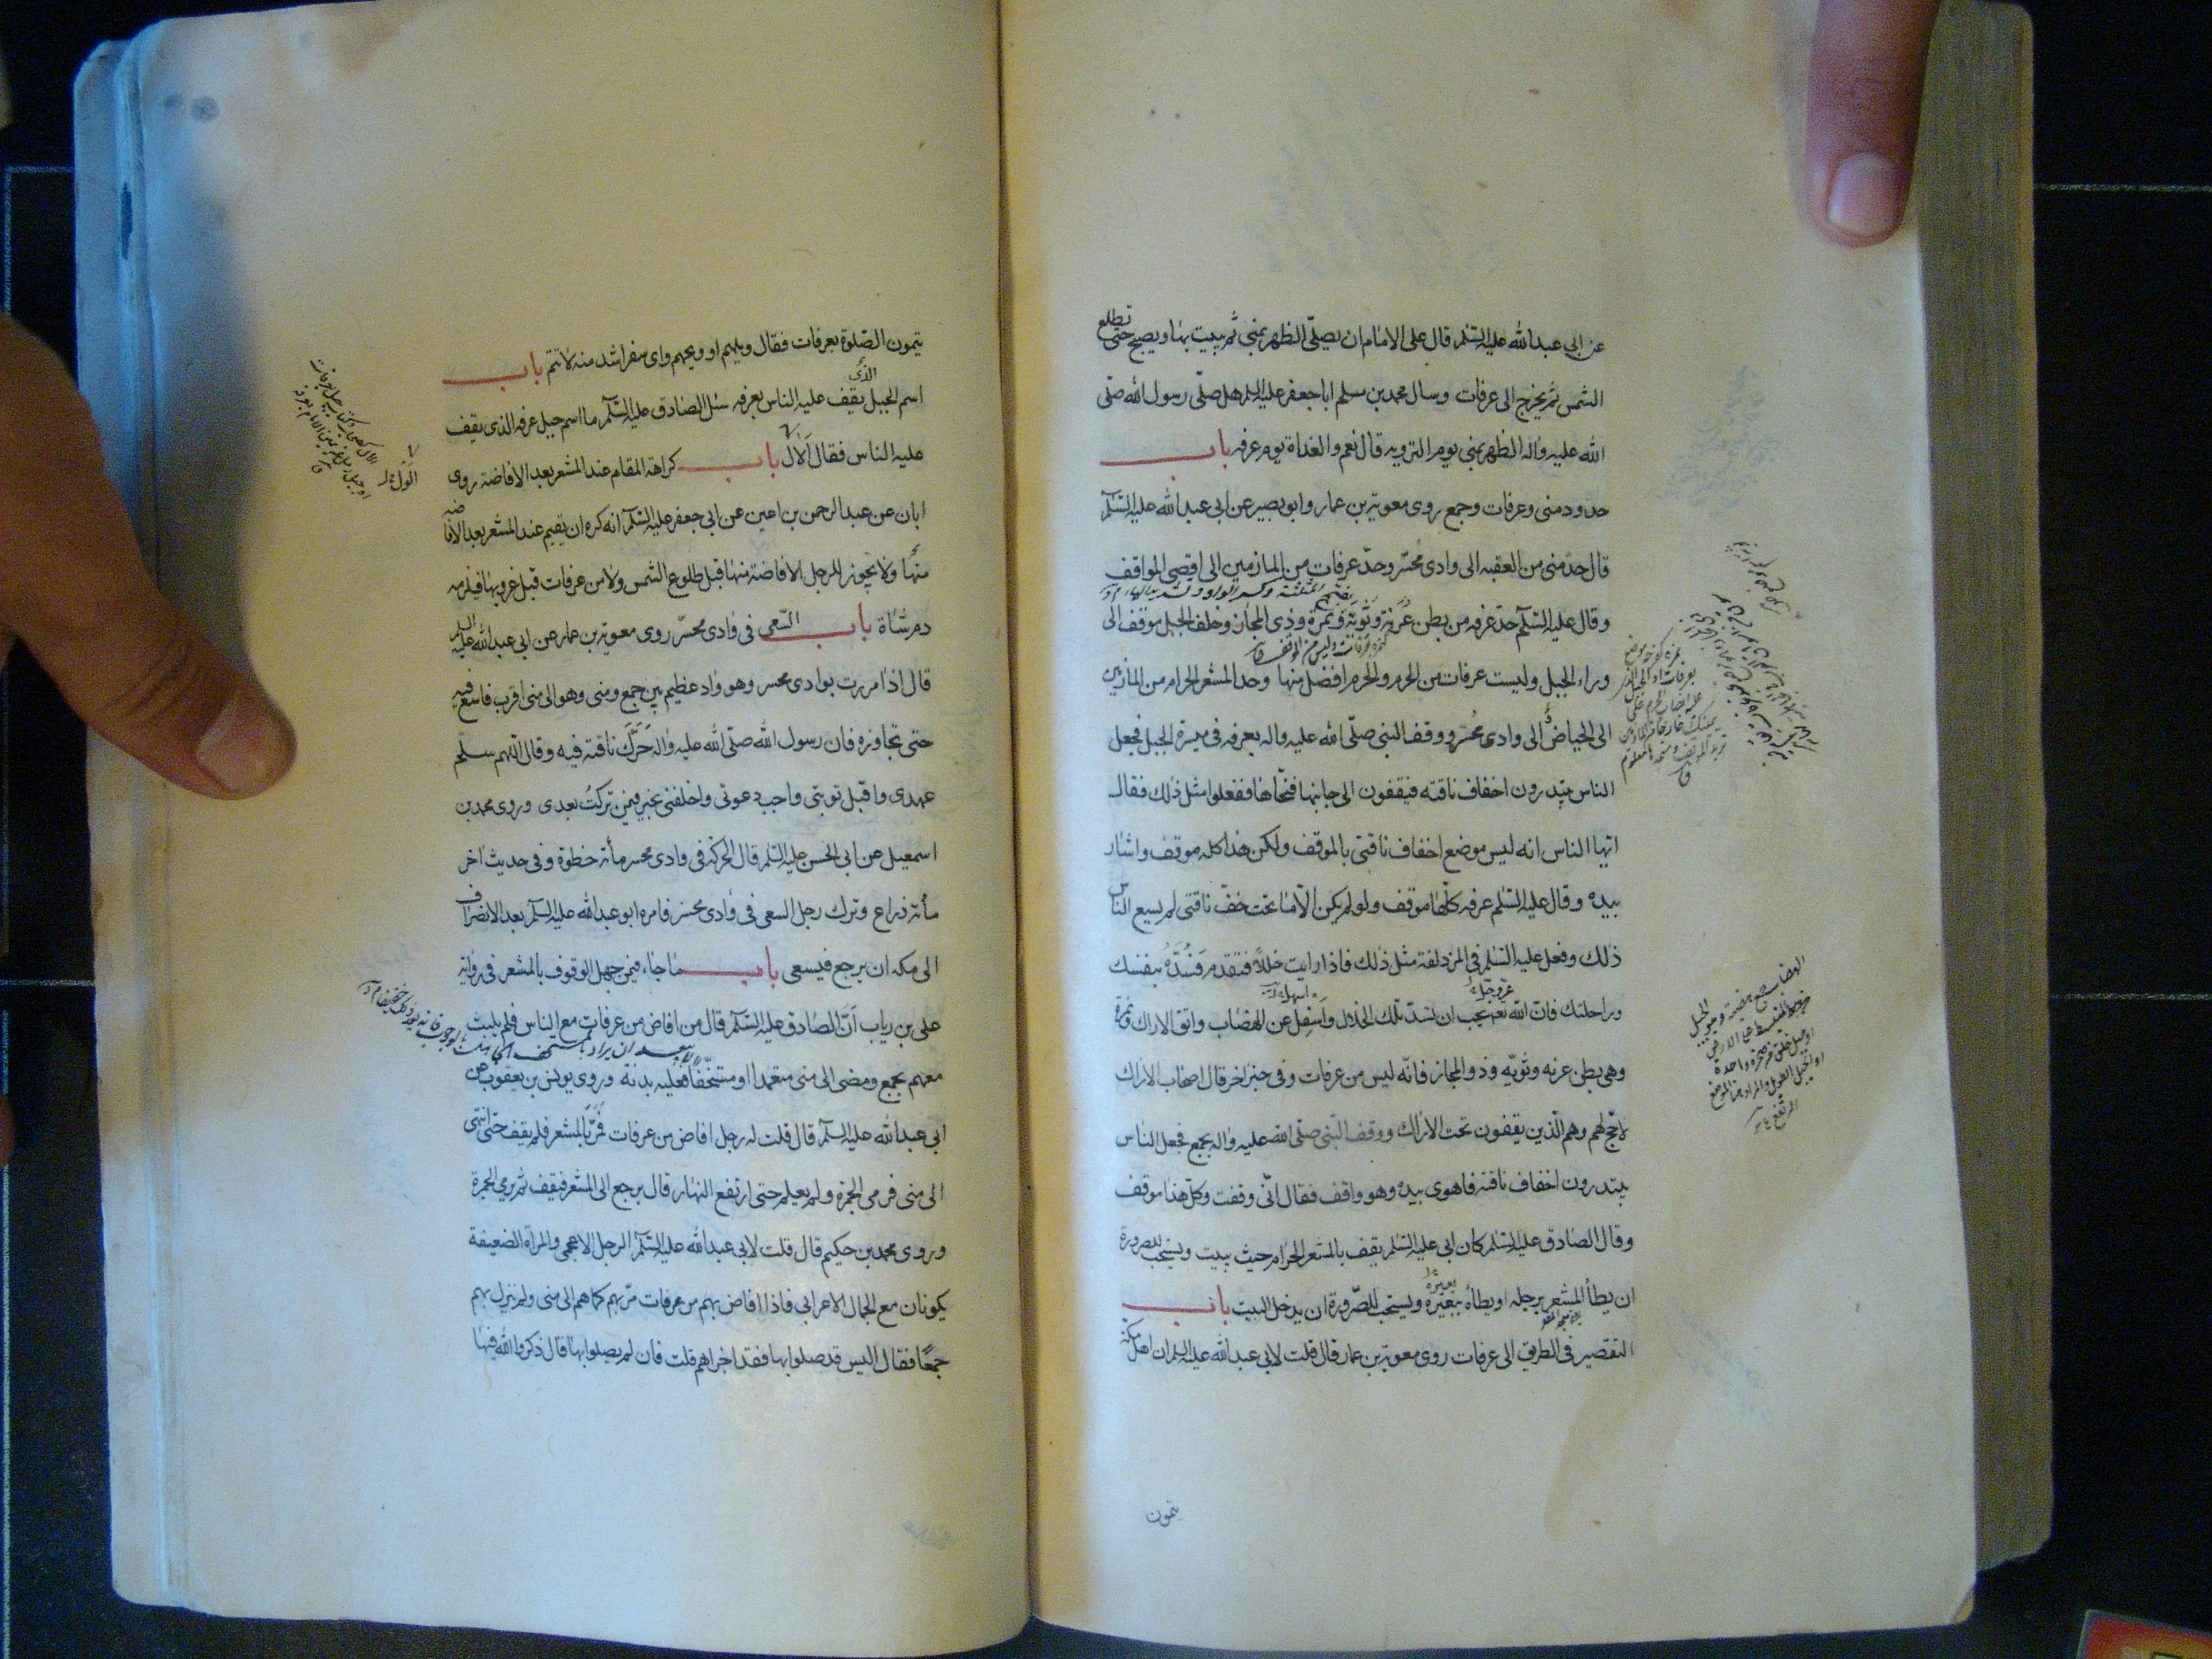 عن ابی عبدالله علیه السّلم قال علی الامام ان یصلّی الظهر بمنی ثم یبیت بها ویصبح حتی تطلع
الشمس ثم یخرج الی عرفات وسال محمد بن مسلم ابا جعفر علیه السلم هل صلّی رسول الله صلّی
الله علیه واله الظهر بمنی یوم الترویه قال نعم والغداة یوم عرفه باب
حدود منی وعرفات وجمع روی معویة بن عمار وابو بصیر عن ابی عبدالله علیه السّلم
قال حد منی من العقبه الی وادی محسّر وحدّ عرفات من المازمین الی اقصی المواقف
وقال علیه السّلم حدّ عرفه من بطن عُرَنة وثَوِیّة ونَمِرة وذی المجاز وخلف الجبل موقف الی
وراء الجبل ولیست عرفات من الحرم والحرم افضل منها وحد المشعر الحرام من المازمین
الی الحیاض الی وادی محسّر ووقف النبی صلّی الله علیه واله بعرفه فی میسرة الجبل فجعل
الناس یبتدرون اخفاف ناقته فیقفون الی جانبها فنحّاها ففعلوا مثل ذلك فقال
ایّها الناس انه لیس موضع اخفاف ناقتی بالموقف ولکن هذا کله موقف واشار
بیده وقال علیه السّلم عرفه کلّها موقف ولو لم یکن الّا ما تحت خفّ ناقتی لم یسع الناس
ذلك وفعل علیه السّلم فی المزدلفة مثل ذلك فاذا رایت خللاً فتقدم فسُدّهُ بنفسك
وراحلتك فانّ الله عزّ وجلّ یحب ان تسدّ تلك الخلال واَسفِل عن الهضاب واتق الاراك ونمرة
وهی بطن عرنه وثویّه وذو المجاز فانّه لیس من عرفات وفی خبر اخر قال اصحاب الاراك
لا حج لهم وهم الّذین یقفون تحت الاراك ووقف النبی صلّی الله علیه واله بجمع فجعل الناس
یبتدرون اخفاف ناقته فاهوی بیده وهو واقف فقال انّی وقفت وکلّ هذا موقف
وقال الصّادق علیه السّلم کان ابی علیه السّلم یقف بالمشعر الحرام حیث یبیت ویستحب للصرورة
ان یطأ المشعر برجله او یطأه ببعیره ویستحب للصّرورة ان یدخل البیت باب
التقصیر فی الطریق الی عرفات روی معویة بن عمار قال قلت لابی عبدالله علیه السلم ان اهل مکة
یتمون
یتمون الصّلوة بعرفات فقال ویلهم او ویحهم وای سفر اشد منه لا تتم باب
اسم الجبل الّذی یقف علیه الناس بعرفه سئل الصّادق علیه السّلم ما اسم جبل عرفه الذی یقف
علیه الناس فقال اَلال باب کراهة المقام عند المشعر بعد الافاضة روی
ابان عن عبد الرحمن بن اعین عن ابی جعفر علیه السّلم انه کره ان یقیم عند المشعر بعد الافاضه
منها ولا یجوز للرجل الافاضة منها قبل طلوع الشمس ولا من عرفات قبل غروبها فیلزمه
دم شاة باب السّعی فی وادی محسّر روی معویة بن عمار عن ابی عبدالله علیه السلم
قال اذا مررت بوادی محسر وهو واد عظیم بین جمع ومنی وهو الی منی اقرب فاسع فیه
حتی تجاوزه فان رسول الله صلّی الله علیه واله حَرَّكَ ناقته فیه وقال اللّهم سلم
عهدی واقبل توبتی واجب دعوتی واخلفنی بخیر فیمن ترکتُ بعدی وروی محمد بن
اسمعیل عن ابی الحسن علیه السّلم قال الحرکة فی وادی محسر مأة خطوة وفی حدیث اخر
مأة ذراع وترك رجل السعی فی وادی محسر فامره ابو عبدالله علیه السّلم بعد الانصراف
الی مکه ان یرجع فیسعی باب ما جاء فیمن جهل الوقوف بالمشعر فی روایة
علی بن ریاب انّ الصّادق علیه السّلم قال من افاض من عرفات مع الناس فلم یلبث
معهم بجمع ومضی الی منی متعمدا او مستخفّاً فعلیه بدنة وروی یونس بن یعقوب عن
ابی عبدالله علیه السلم قال قلت له رجل افاض من عرفات فمَرّ بالمشعر فلم یقف حتی انتهی
الی منی فرمی الجمرة ولم یعلم حتی ارتفع النهار قال یرجع الی المشعر فیقف ثم یرمی الجمرة
وروی محمد بن حکیم قال قلت لابی عبدالله علیه السّلم الرجل الاعجمی والمراة الضعیفة
یکونان مع الجمال الاعرابی فاذا افاض بهم من عرفات مرّ بهم کما هم الی منی ولم ینزل بهم
جمعًا فقال الیس قد صلوا بها فقد اجزاهم قلت فان لم یصلوا بها قال ذکروا الله فیها